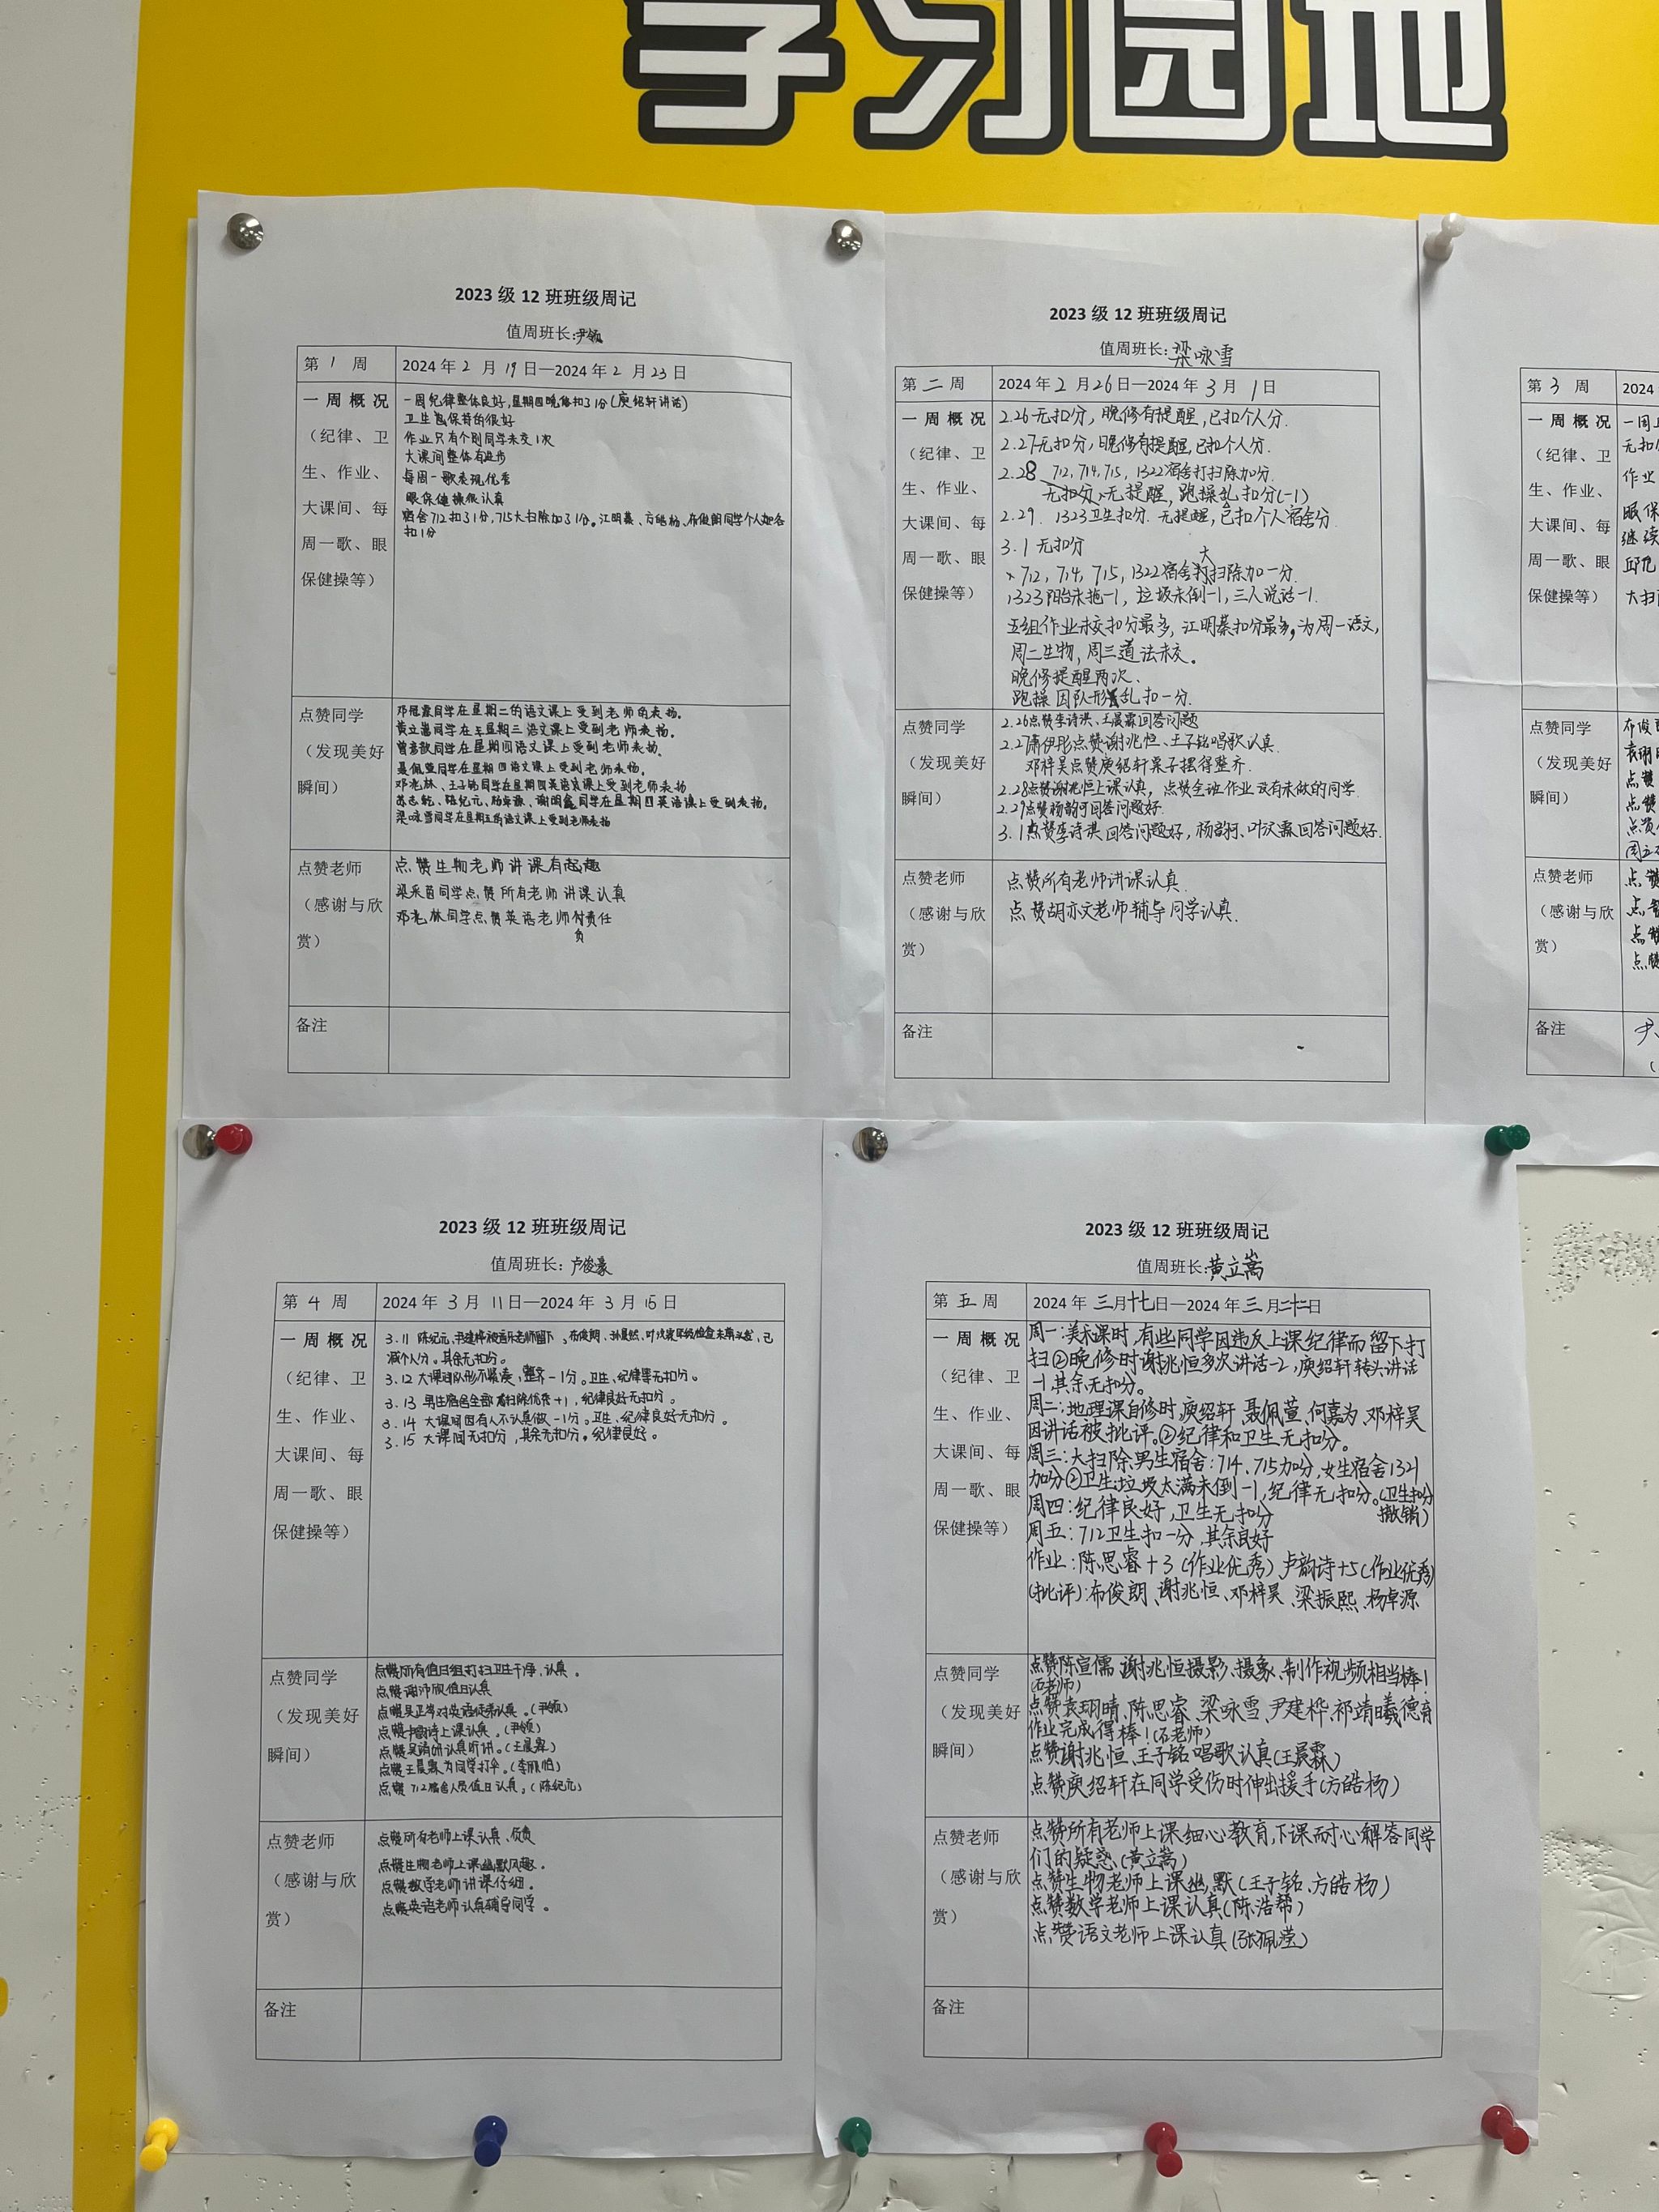 学习园地
2023 级 12 班班级周记
值周班长:尹领
第 1 周
2024 年 2 月 19 日—2024 年 2 月 23 日
一周概况
（纪律、卫
生、作业、
大课间、每
周一歌、眼
保健操等）
一周纪律整体良好,星期四晚修扣31分(庾绍轩讲话)
卫生 保持的很好
作业只有个别同学未交1次
大课间整体有进步
每周一歌表现优秀
眼保健操很认真
宿舍712扣31分,715大扫除加31分。江明蓁、方皓杨、布俊朗同学个人 各
扣1分
点赞同学
（发现美好
瞬间）
同学在星期二的语文课上受到老师的表扬。
黄立嵩同学在星期三语文课上受到老师表扬。
同学在星期四语文课上受到老师表扬。
聂佩萱同学在星期四语文课上受到老师表扬。
邓 林、王子铭同学在星期四英语课上受到老师表扬
同学在星期四英语课上受到表扬。
梁咏雪同学在星期五的语文课上受到老师表扬
点赞老师
（感谢与欣
赏）
点赞生物老师讲课有趣
同学点赞所有老师讲课认真
邓 林同学点赞英语老师负责任
备注
2023 级 12 班班级周记
值周班长:梁咏雪
第 二 周
2024 年 2 月 26 日—2024 年 3 月 1 日
一周概况
（纪律、卫
生、作业、
大课间、每
周一歌、眼
保健操等）
2.26 无扣分，晚修有提醒，已扣个人分.
2.27 无扣分，晚修有提醒,已扣个人分.
2.28 712,714,715,1322宿舍打扫除加分.
无扣分、无提醒，跑操乱扣分(-1)
2.29. 1323卫生扣分. 无提醒,已扣个人宿舍分.
3.1 无扣分
712, 714, 715, 1322宿舍大扫除加一分.
1323阳台未拖-1，垃圾未倒-1,三人说话-1.
五组作业未交扣分最多，江明蓁扣分最多,为周一语文，
周二生物，周三道法未交。
晚修提醒两次、
跑操因队形乱扣一分.
点赞同学
（发现美好
瞬间）
2.26点赞李诗淇、王晨霖回答问题
2.27萧伊彤点赞谢兆恒、王子铭唱歌认真.
邓梓昊点赞庾绍轩桌子摆得整齐.
2.28点赞谢兆恒上课认真，点赞全班作业没有未做的同学.
2.29点赞杨韵可回答问题好.
3.1点赞李诗淇回答问题好，杨韵柯、叶汶霖回答问题好.
点赞老师
（感谢与欣
赏）
点赞所有老师讲课认真.
点赞胡亦文老师辅导同学认真.
备注
第 3 周
2024
一周概况
（纪律、卫
生、作业、
大课间、每
周一歌、眼
保健操等）
一周
无扣
作业
眼保
继续
大扫
点赞同学
（发现美好
瞬间）
布俊
点赞
点赞
点赞
点赞老师
（感谢与欣
赏）
点赞
点赞
点赞
点赞
备注
2023 级 12 班班级周记
值周班长: 卢俊豪
第 4 周
2024 年 3 月 11 日—2024 年 3 月 15 日
一周概况
（纪律、卫
生、作业、
大课间、每
周一歌、眼
保健操等）
3.11 陈纪元,尹建桦被音乐老师留下，布俊朗、 ，已
减个人分。其余无扣分。
3.12 大课间队形不紧凑，整齐-1分。卫生、纪律等无扣分。
3.13 男生宿舍全部 扫除优秀+1，纪律良好无扣分。
3.14 大课间因有人不认真做-1分。卫生、纪律良好无扣分。
3.15 大课间无扣分，其余无扣分。纪律良好。
点赞同学
（发现美好
瞬间）
点赞所有值日组打扫卫生干净,认真。
点赞谢沛欣值日认真
点赞 对英语 认真。(尹领)
点赞 上课认真。(尹领)
点赞 认真听讲。(王晨霖)
点赞王晨霖为同学打伞。
点赞712宿舍人员值日认真。(陈纪元)
点赞老师
（感谢与欣
赏）
点赞所有老师上课认真、负责
点赞生物老师上课幽默风趣。
点赞数学老师讲课仔细。
点赞英语老师认真辅导同学。
备注
2023 级 12 班班级周记
值周班长:黄立嵩
第 五 周
2024 年 三月十七日—2024 年 三 月二十二日
一周概况
（纪律、卫
生、作业、
大课间、每
周一歌、眼
保健操等）
周一:美术课时,有些同学因违反上课纪律而留下打
扫②晚修时谢兆恒多次讲话-2,庾绍轩转头讲话
-1,其余无扣分。
周二:地理课自修时,庾绍轩、聂佩萱、何嘉为、邓梓昊
因讲话被批评。②纪律和卫生无扣分。
周三:大扫除,男生宿舍:714、715加分,女生宿舍1321
加分②卫生:垃圾太满未倒-1,纪律无扣分。(卫生扣分
撤销)
周四:纪律良好,卫生无扣分
周五:712卫生扣一分,其余良好
作业:陈思睿+3(作业优秀) 卢韵诗+5(作业优秀)
(批评):布俊朗、谢兆恒、邓梓昊、梁振熙、杨卓源
点赞同学
（发现美好
瞬间）
点赞陈宣儒、谢兆恒摄影、摄象、制作视频相当棒!
(石老师)
点赞袁珝晴、陈思睿、梁咏雪、尹建桦、祁靖曦德育
作业完成得棒!(石老师)
点赞谢兆恒、王子铭唱歌认真(王晨霖)
点赞庾绍轩在同学受伤时伸出援手(方皓杨)
点赞老师
（感谢与欣
赏）
点赞所有老师上课细心教育,下课耐心解答同学
们的疑惑(黄立嵩)
点赞生物老师上课幽默(王子铭、方皓杨)
点赞数学老师上课认真(陈浩帮)
点赞语文老师上课认真(张佩滢)
备注